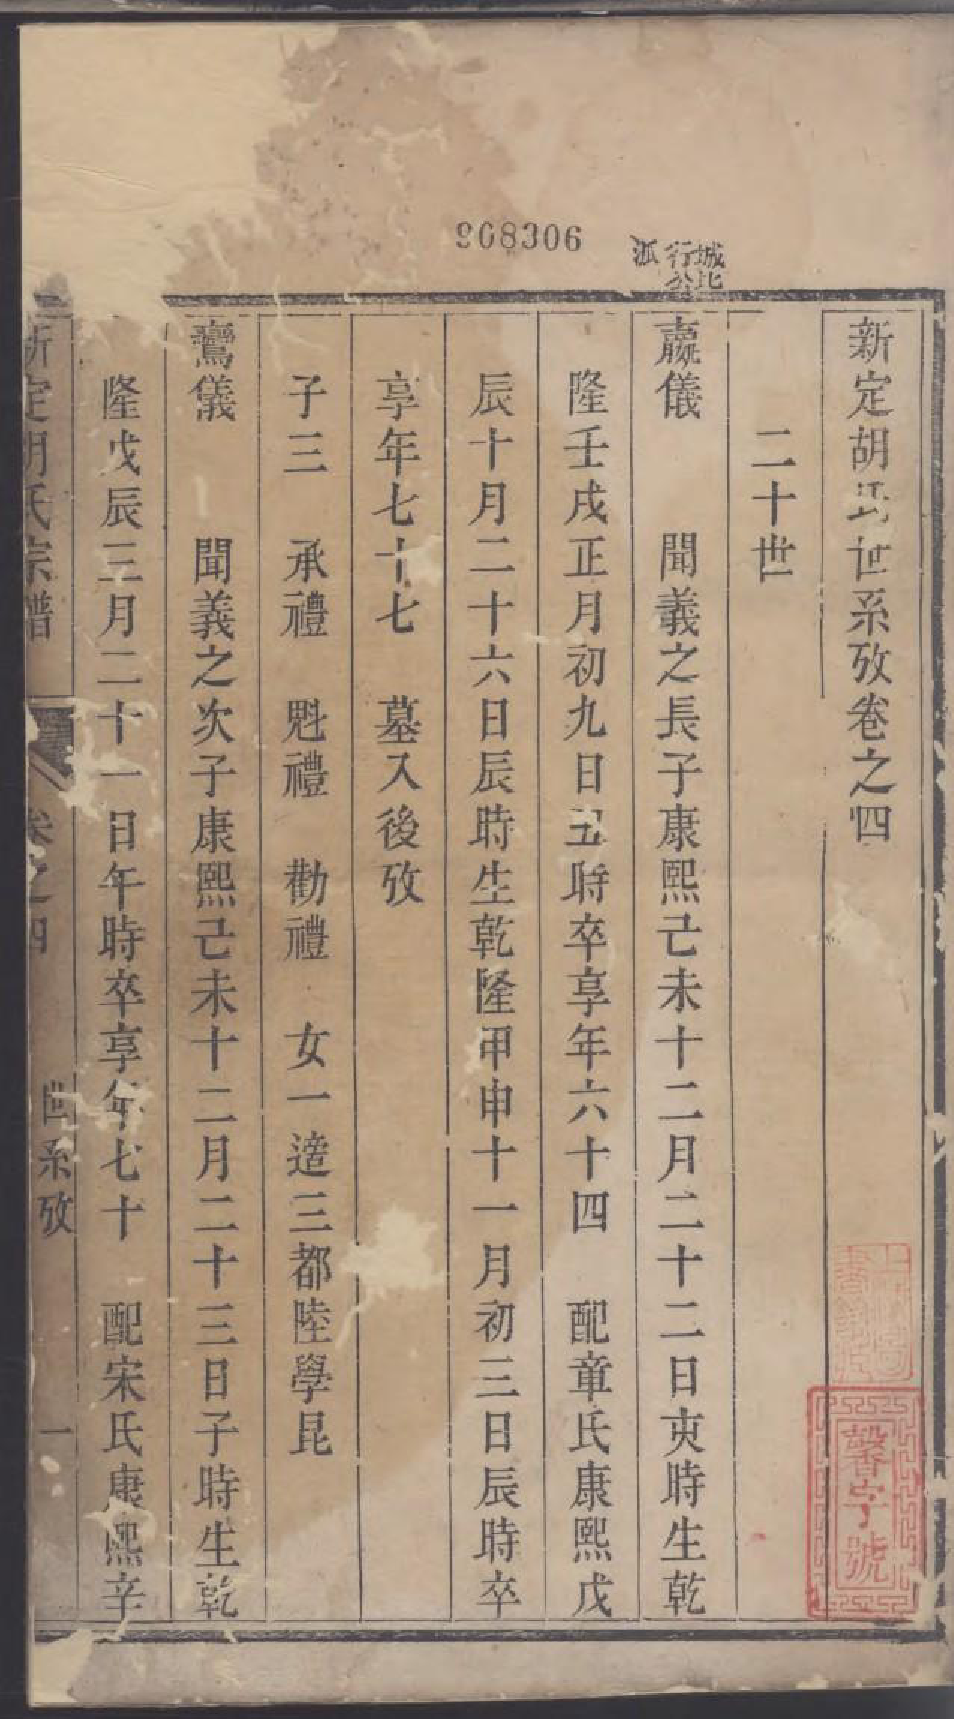 908306
城北
行公
派
新定胡氏世系攷卷之四
二十世
嬴儀 聞義之長子康熙己未十二月二十二日寅時生乾
隆壬戌正月初九日丑時卒享年六十四 配章氏康熙戊
辰十月二十六日辰時生乾隆甲申十一月初三日辰時卒
享年七十七 墓入後攷
子三 承禮 魁禮 勸禮 女一適三都陸學昆
鸞儀 聞義之次子康熙己未十二月二十三日子時生乾
隆戊辰三月二十一日午時卒享年七十 配宋氏康熙辛
新定胡氏宗譜 卷之四 世系攷 一
馨字號